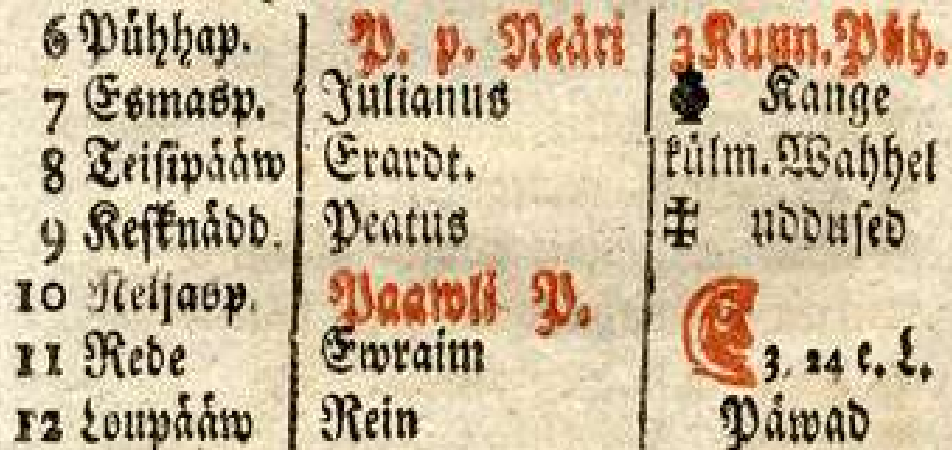 6 Pühhap. P. p. Neäri 3 Kunn. Püh.
7 Esmasp. Julianus Kange
8 Teisipääw Erardt. külm. Wahhel
9 Kesknädd. Peatus ‡ uddused
10 Neljasp. Paawli P.
11 Rede Ewraim 3, 24 e. L.
12 Loupääw Rein Päwad